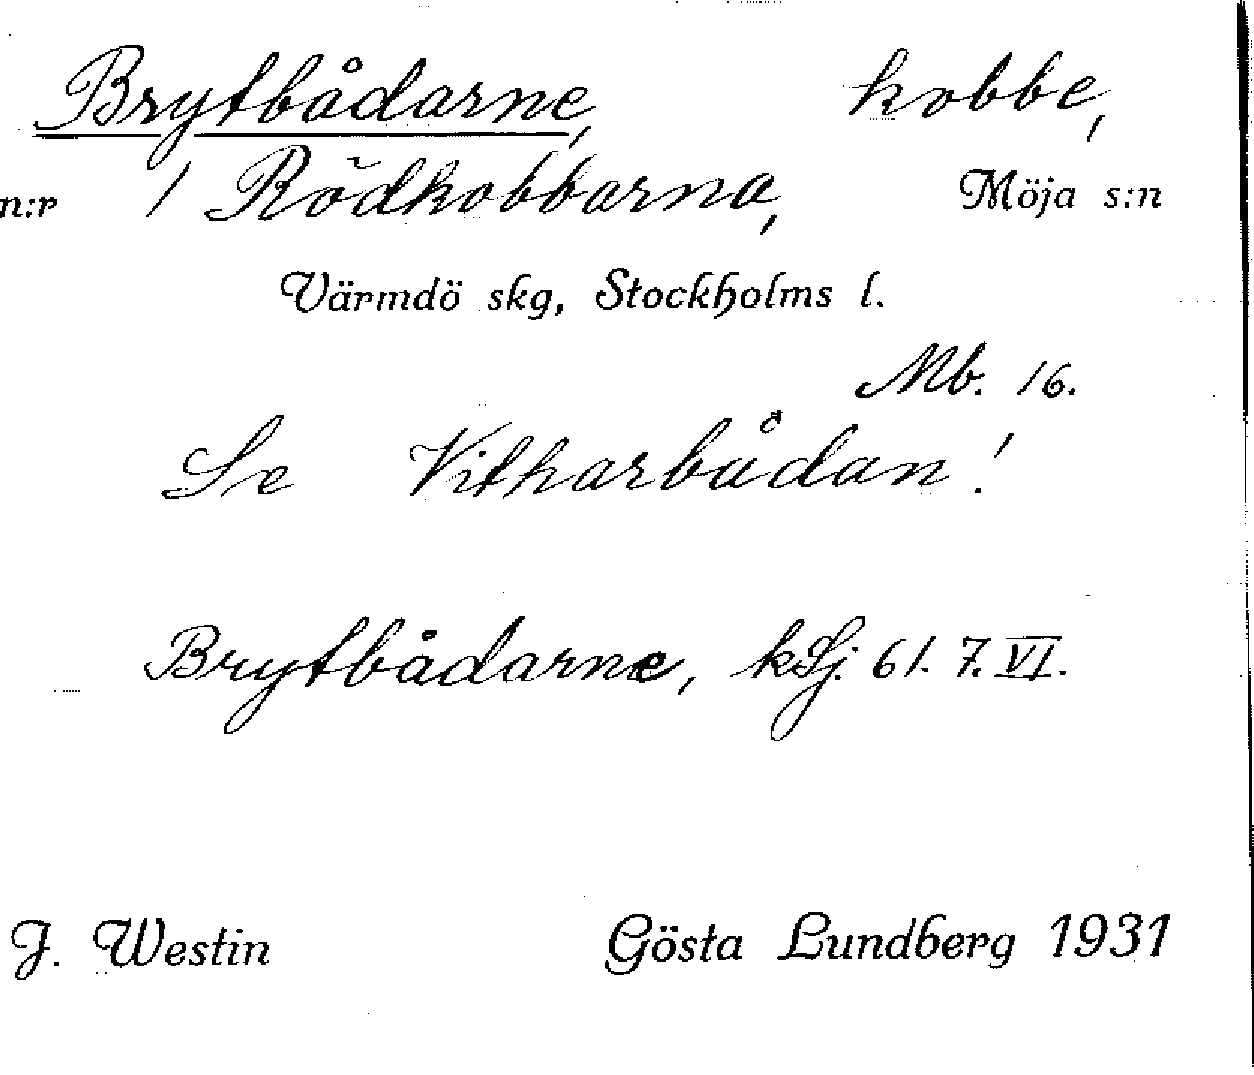 Brytbådarne, kobbe,
n:r 1 Rödkobbarna, Möja s:n
Värmdö skg, Stockholms l.
Mb. 16.
Se Vitharbådan!
Brytbådarne, kSj. 61. 7. VI.
J. Westin Gösta Lundberg 1931